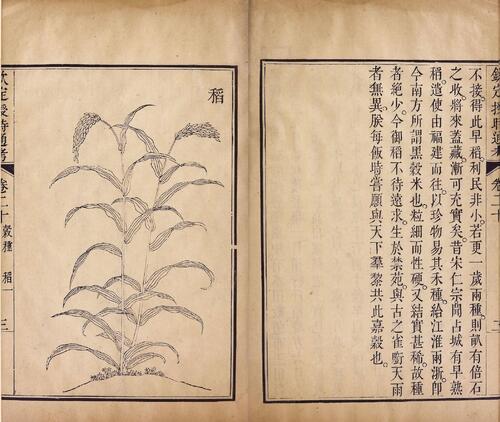 欽定授時通考 卷二十
不接得此早稻。利民非小。若更一歲兩種。則畝有倍石
之收。將來蓋藏漸可充實矣。昔宋仁宗聞占城有早熟
稻。遣使由福建而往。以珍物易其禾種。給江淮兩浙。卽
今南方所謂黑穀米也。粒細而性硬。又結實甚稀。故種
者絕少。今御稻不待遠求。生於禁苑。與古之雀銜天雨
者無異。朕每飯時。嘗願與天下羣黎共此嘉穀也。
稻
欽定授時通考 卷二十 穀種 稻一 三